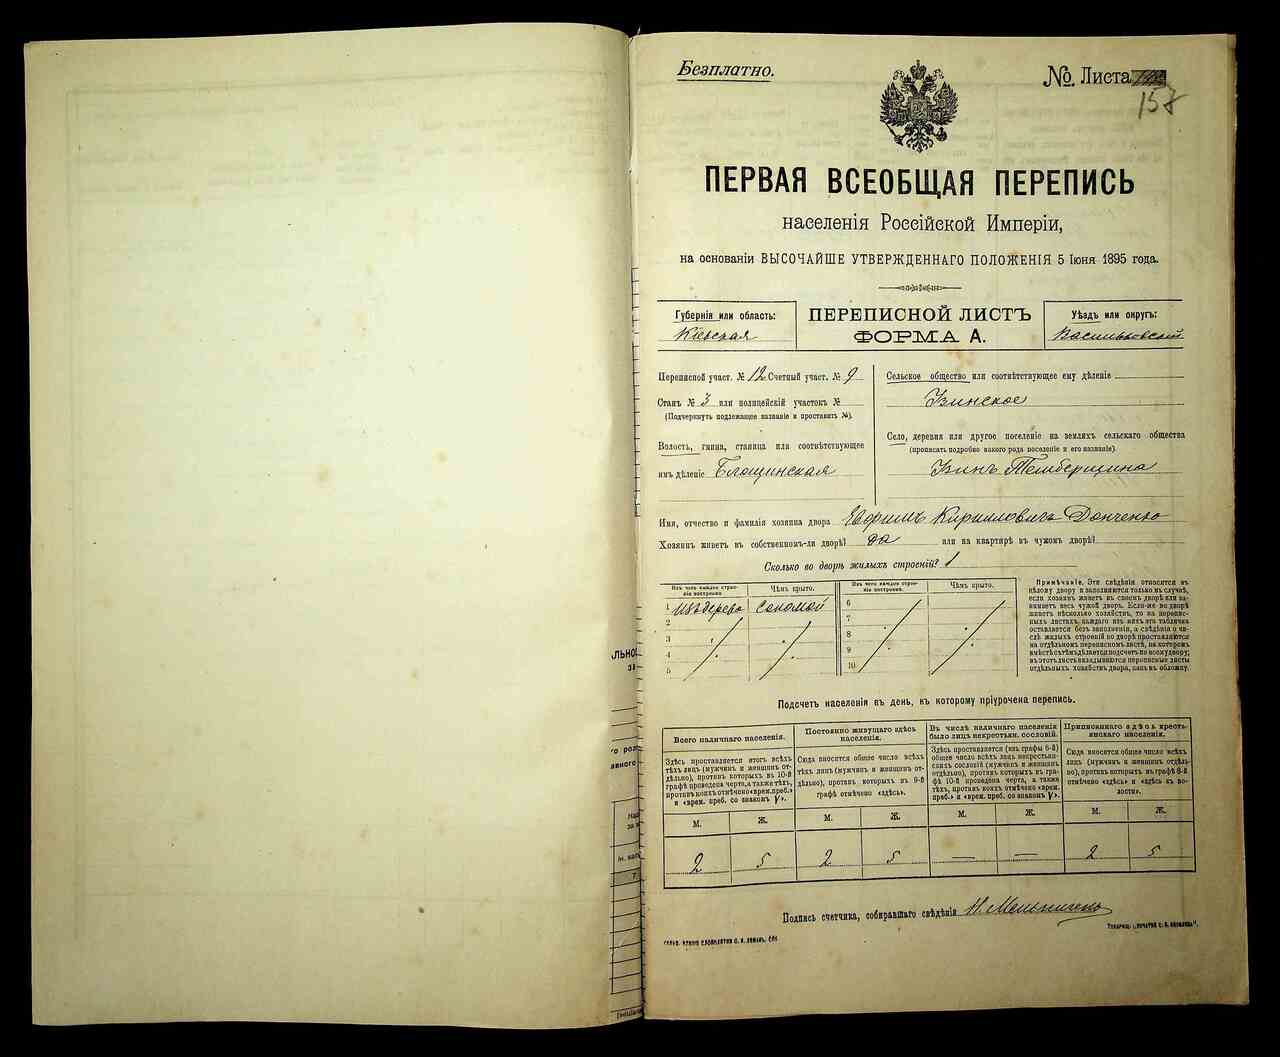 Безплатно.
№. Листа
157
ПЕРВАЯ ВСЕОБЩАЯ ПЕРЕПИСЬ
населенія Россійской Имперіи,
на основаніи ВЫСОЧАЙШЕ УТВЕРЖДЕННАГО ПОЛОЖЕНІЯ 5 Іюня 1895 года.
Губернія или область:
Кіевская
ПЕРЕПИСНОЙ ЛИСТЪ
ФОРМА А.
Уѣздъ или округъ:
Васильковскій
Переписной участ. № 12 Счетный участ. № 9
Станъ № 3 или полицейскій участокъ №
(Подчеркнуть подлежащее названіе и проставить №).
Волость, гмина, станица или соотвѣтствующее
имъ дѣленіе Блощинская
Сельское общество или соотвѣтствующее ему дѣленіе
Узинское
Село, деревня или другое поселеніе на земляхъ сельскаго общества
(прописать подробно какого рода поселеніе и его названіе).
Узинъ Темберщина
Имя, отчество и фамилія хозяина двора Евфимъ Кирилловичъ Донченко
Хозяинъ живетъ въ собственномъ-ли дворѣ? да или на квартирѣ въ чужомъ дворѣ?
Сколько во дворѣ жилыхъ строеній? 1
Изъ чего каждое строеніе построено. Чѣмъ крыто. Изъ чего каждое строеніе построено. Чѣмъ крыто.
1 Изъ дерева соломой 6
2 7
3 8
4 9
5 10
Примѣчаніе. Эти свѣдѣнія относятся къ
цѣлому двору и заполняются только въ случаѣ,
если хозяинъ живетъ въ своемъ дворѣ или занимаетъ
весь чужой дворъ. Если-же во дворѣ
живетъ нѣсколько хозяйствъ, то на переписныхъ
листахъ каждаго изъ нихъ эта табличка
оставляется безъ заполненія, а свѣдѣнія о числѣ
жилыхъ строеній во дворѣ проставляются
на отдѣльномъ переписномъ листѣ, на которомъ
вмѣстѣ съ тѣмъ дѣлается подсчетъ по всему двору;
въ этотъ листъ вкладываются переписные листы
отдѣльныхъ хозяйствъ двора, какъ въ обложку.
Подсчетъ населенія въ день, къ которому пріурочена перепись.
Всего наличнаго населенія.
Постоянно живущаго здѣсь
населенія.
Въ числѣ наличнаго населенія
было лицъ некрестьян. сословій.
Приписаннаго здѣсь крестьянскаго
населенія.
Здѣсь проставляется итогъ всѣхъ
тѣхъ лицъ (мужчинъ и женщинъ отдѣльно),
противъ которыхъ въ 10-й
графѣ проведена черта, а также тѣхъ,
противъ коихъ отмѣчено «врем. преб.»
и «врем. преб. со знакомъ V».
Сюда вносится общее число всѣхъ
тѣхъ лицъ (мужчинъ и женщинъ отдѣльно),
противъ которыхъ въ 9-й
графѣ отмѣчено «здѣсь».
Здѣсь проставляется (изъ графы 6-й)
общее число всѣхъ лицъ некрестьянскихъ
сословій (мужчинъ и женщинъ
отдѣльно), противъ которыхъ въ графѣ
10-й проведена черта, а также
тѣхъ, противъ коихъ отмѣчено «врем.
преб.» и «врем. преб. со знакомъ V».
Сюда вносится общее число всѣхъ
лицъ (мужчинъ и женщинъ отдѣльно),
противъ которыхъ въ графѣ 8-й
отмѣчено «здѣсь» и «здѣсь въ волости».
М. Ж. М. Ж. М. Ж. М. Ж.
2 5 2 5 — — 2 5
Подпись счетчика, собиравшаго свѣдѣнія Н. Мельниченко